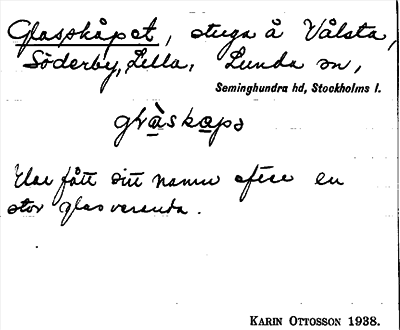 Glasskåpet, stuga å Vålsta,
Söderby, Lilla, Lunda sn,
Seminghundra hd, Stockholms l.
Har fått sitt namn efter en
stor glasveranda.
KARIN OTTOSSON 1938.